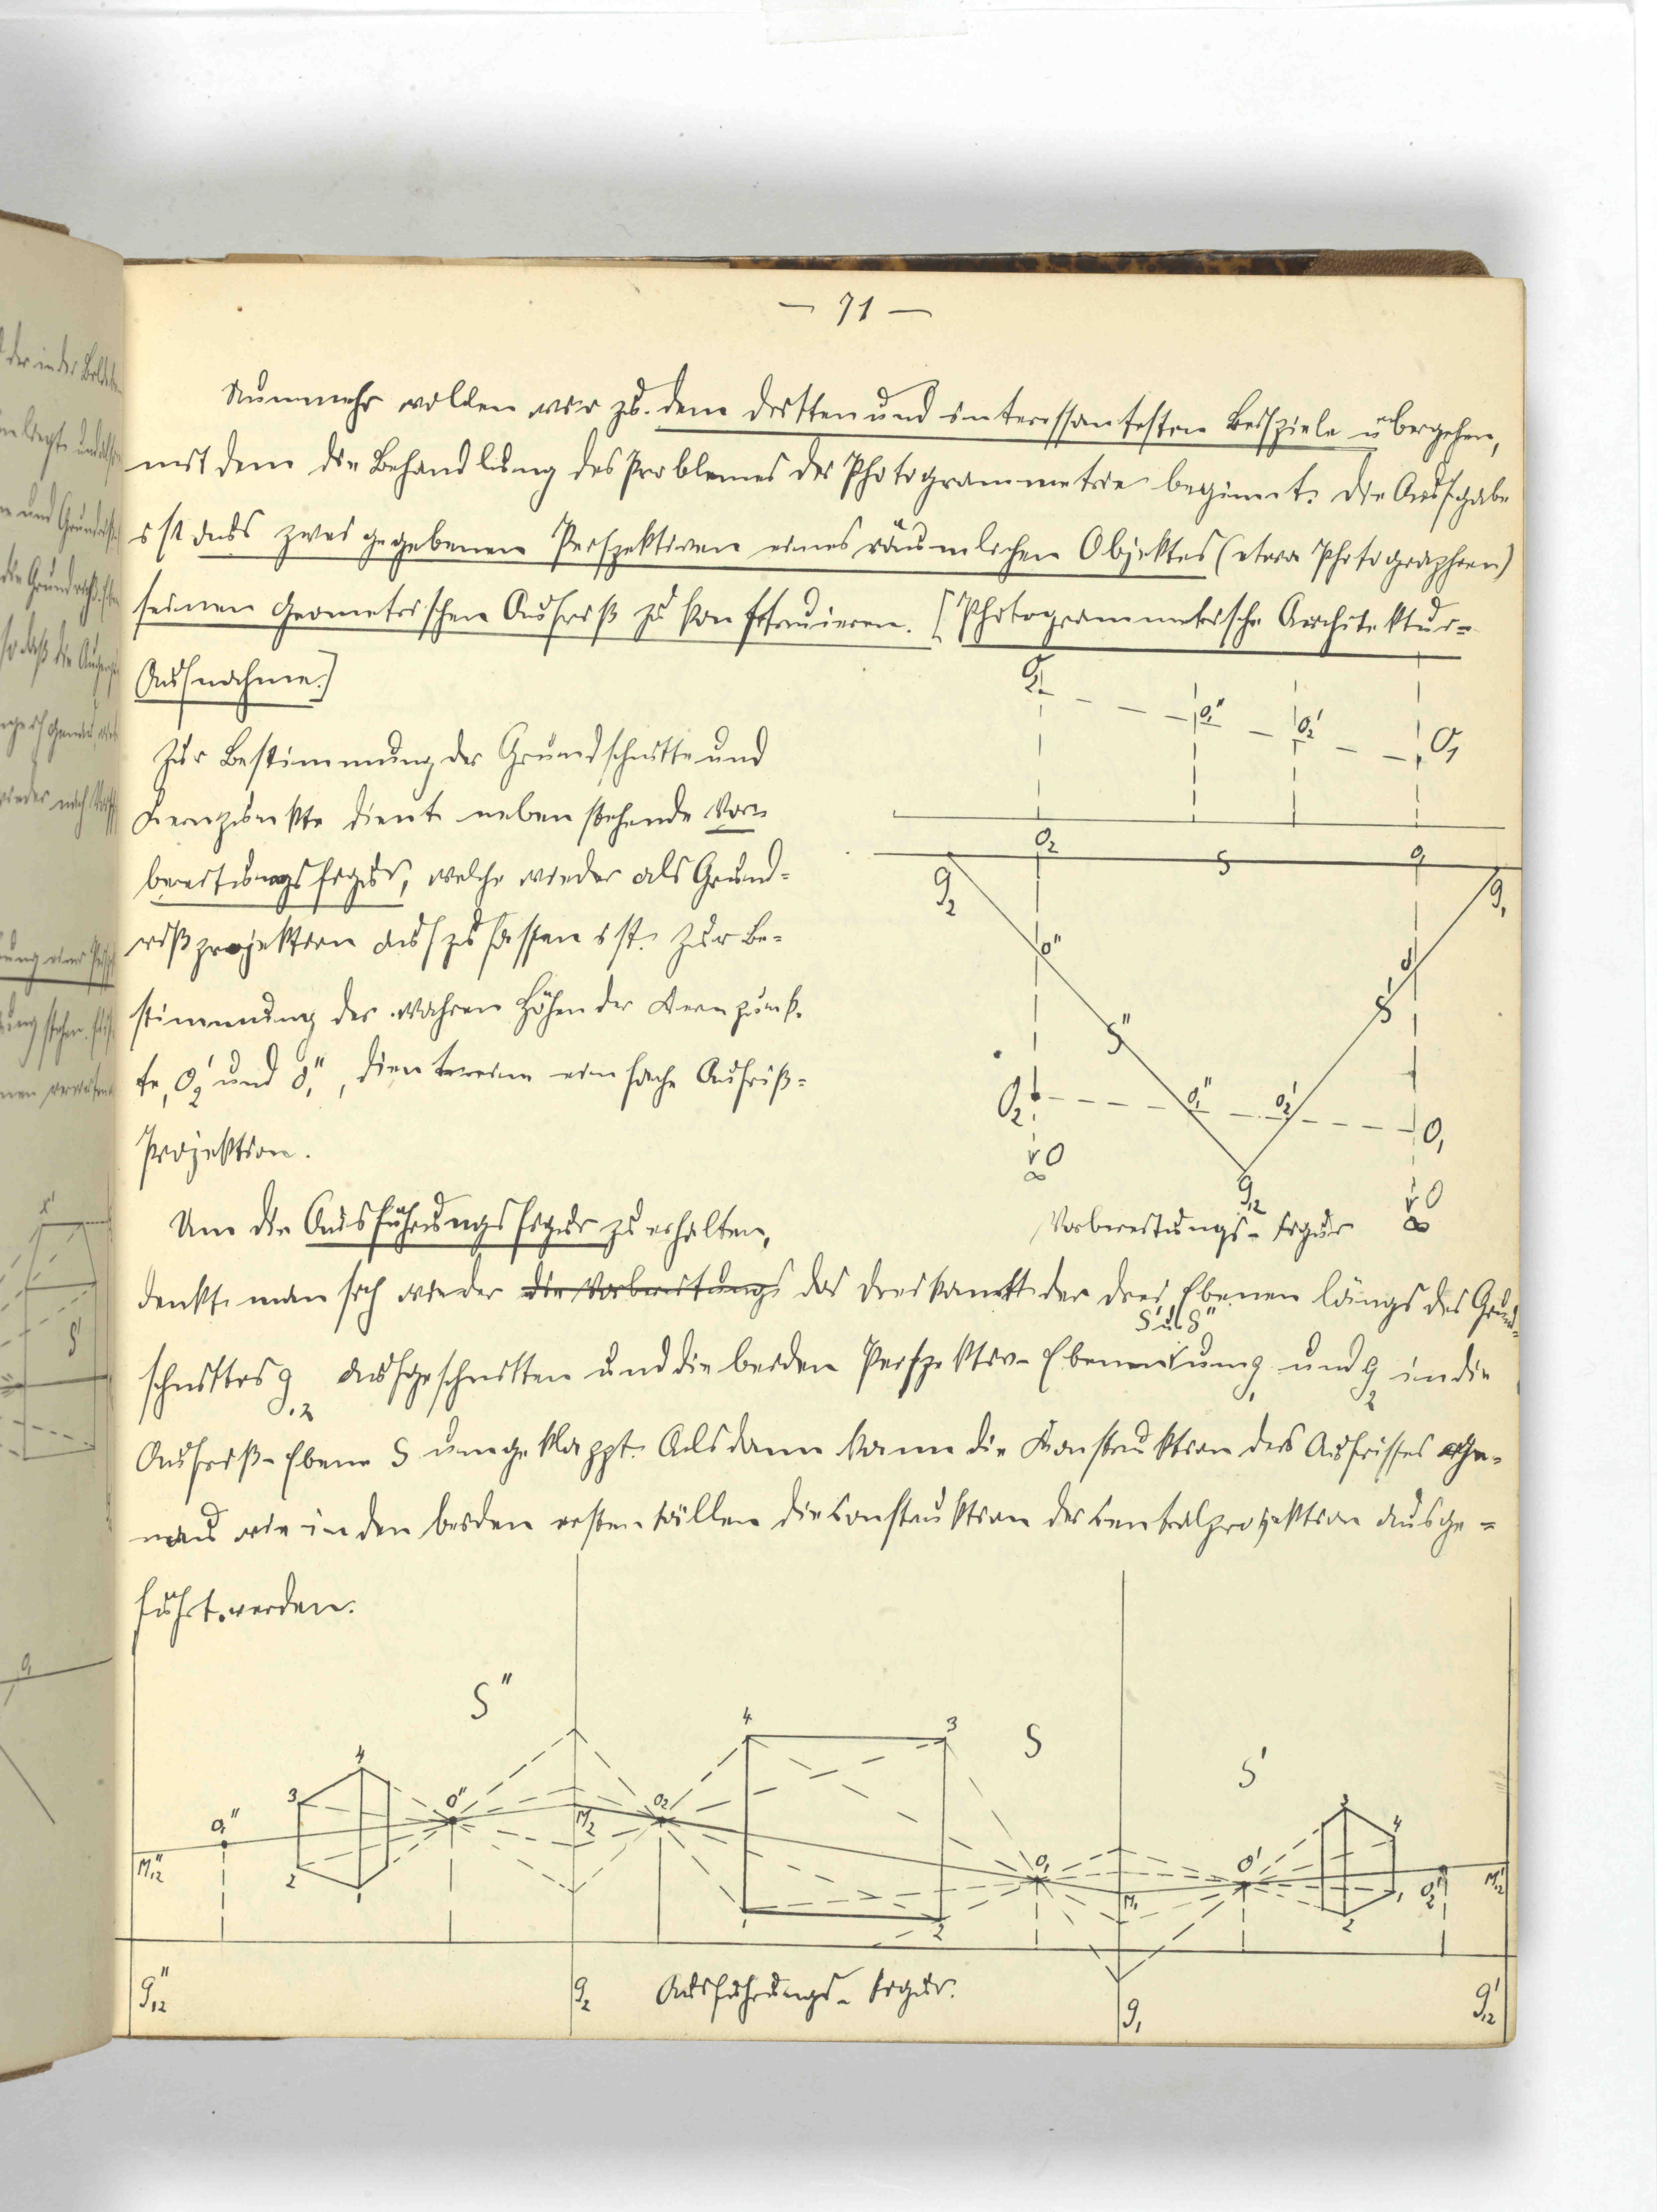 — 71 —
Nunmehr wollen wir zu dem dritten und interessantesten Beispiele übergehen,
mit dem die Behandlung des Problemes der Photogrammetrie beginnt. Die Aufgabe
ist aus zwei gegebenen Perspektiven eines räumlichen Objektes (etwa Photographien)
seinen geometrischen Aufriß zu konstruieren. [Photogrammetrische Architektur=
Aufnahme.]
Zur Bestimmung der Grundschnitte und
Kernpunkte dient nebenstehende Vor=
bereitungsfigur, welche wieder als Grund=
rißprojektion aufzufassen ist. Zur Be=
stimmung der wahren Höhen der Kernpunk=
te, O₂' und O₁'', dient eine einfache Aufriß=
Projektion.
Um die Ausführungsfigur zu erhalten,
denkt man sich wieder die Vorbereitungs das Dreikant der drei Ebenen längs des Grund=
schnittes g₁₂ aufgeschnitten und die beiden Perspektiv-Ebenen S' u. S'' um g₁ und g₂ in die
Aufriß-Ebene S umgeklappt. Alsdann kann die Konstruktion des Aufrisses ge=
nau wie in den beiden ersten Fällen die Konstruktion der Centralprojektion ausge=
führt werden.
O₂ O₁'' O₂' O₁
O₂ S O₁
g₂ g₁
O'' O'
S'' S'
O₂ O₁'' O₂' O₁
O ∞ g₁₂ O ∞
Vorbereitungs-Figur
S'' S S'
4 4 3 3
3 O'' O₂ 4
O₁'' M₂ O₁ O'
M₁₂'' 2 1 1 2 M₁ 2 1 O₂' M₁₂'
g₁₂'' g₂ Ausführungs-Figur. g₁ g₁₂'